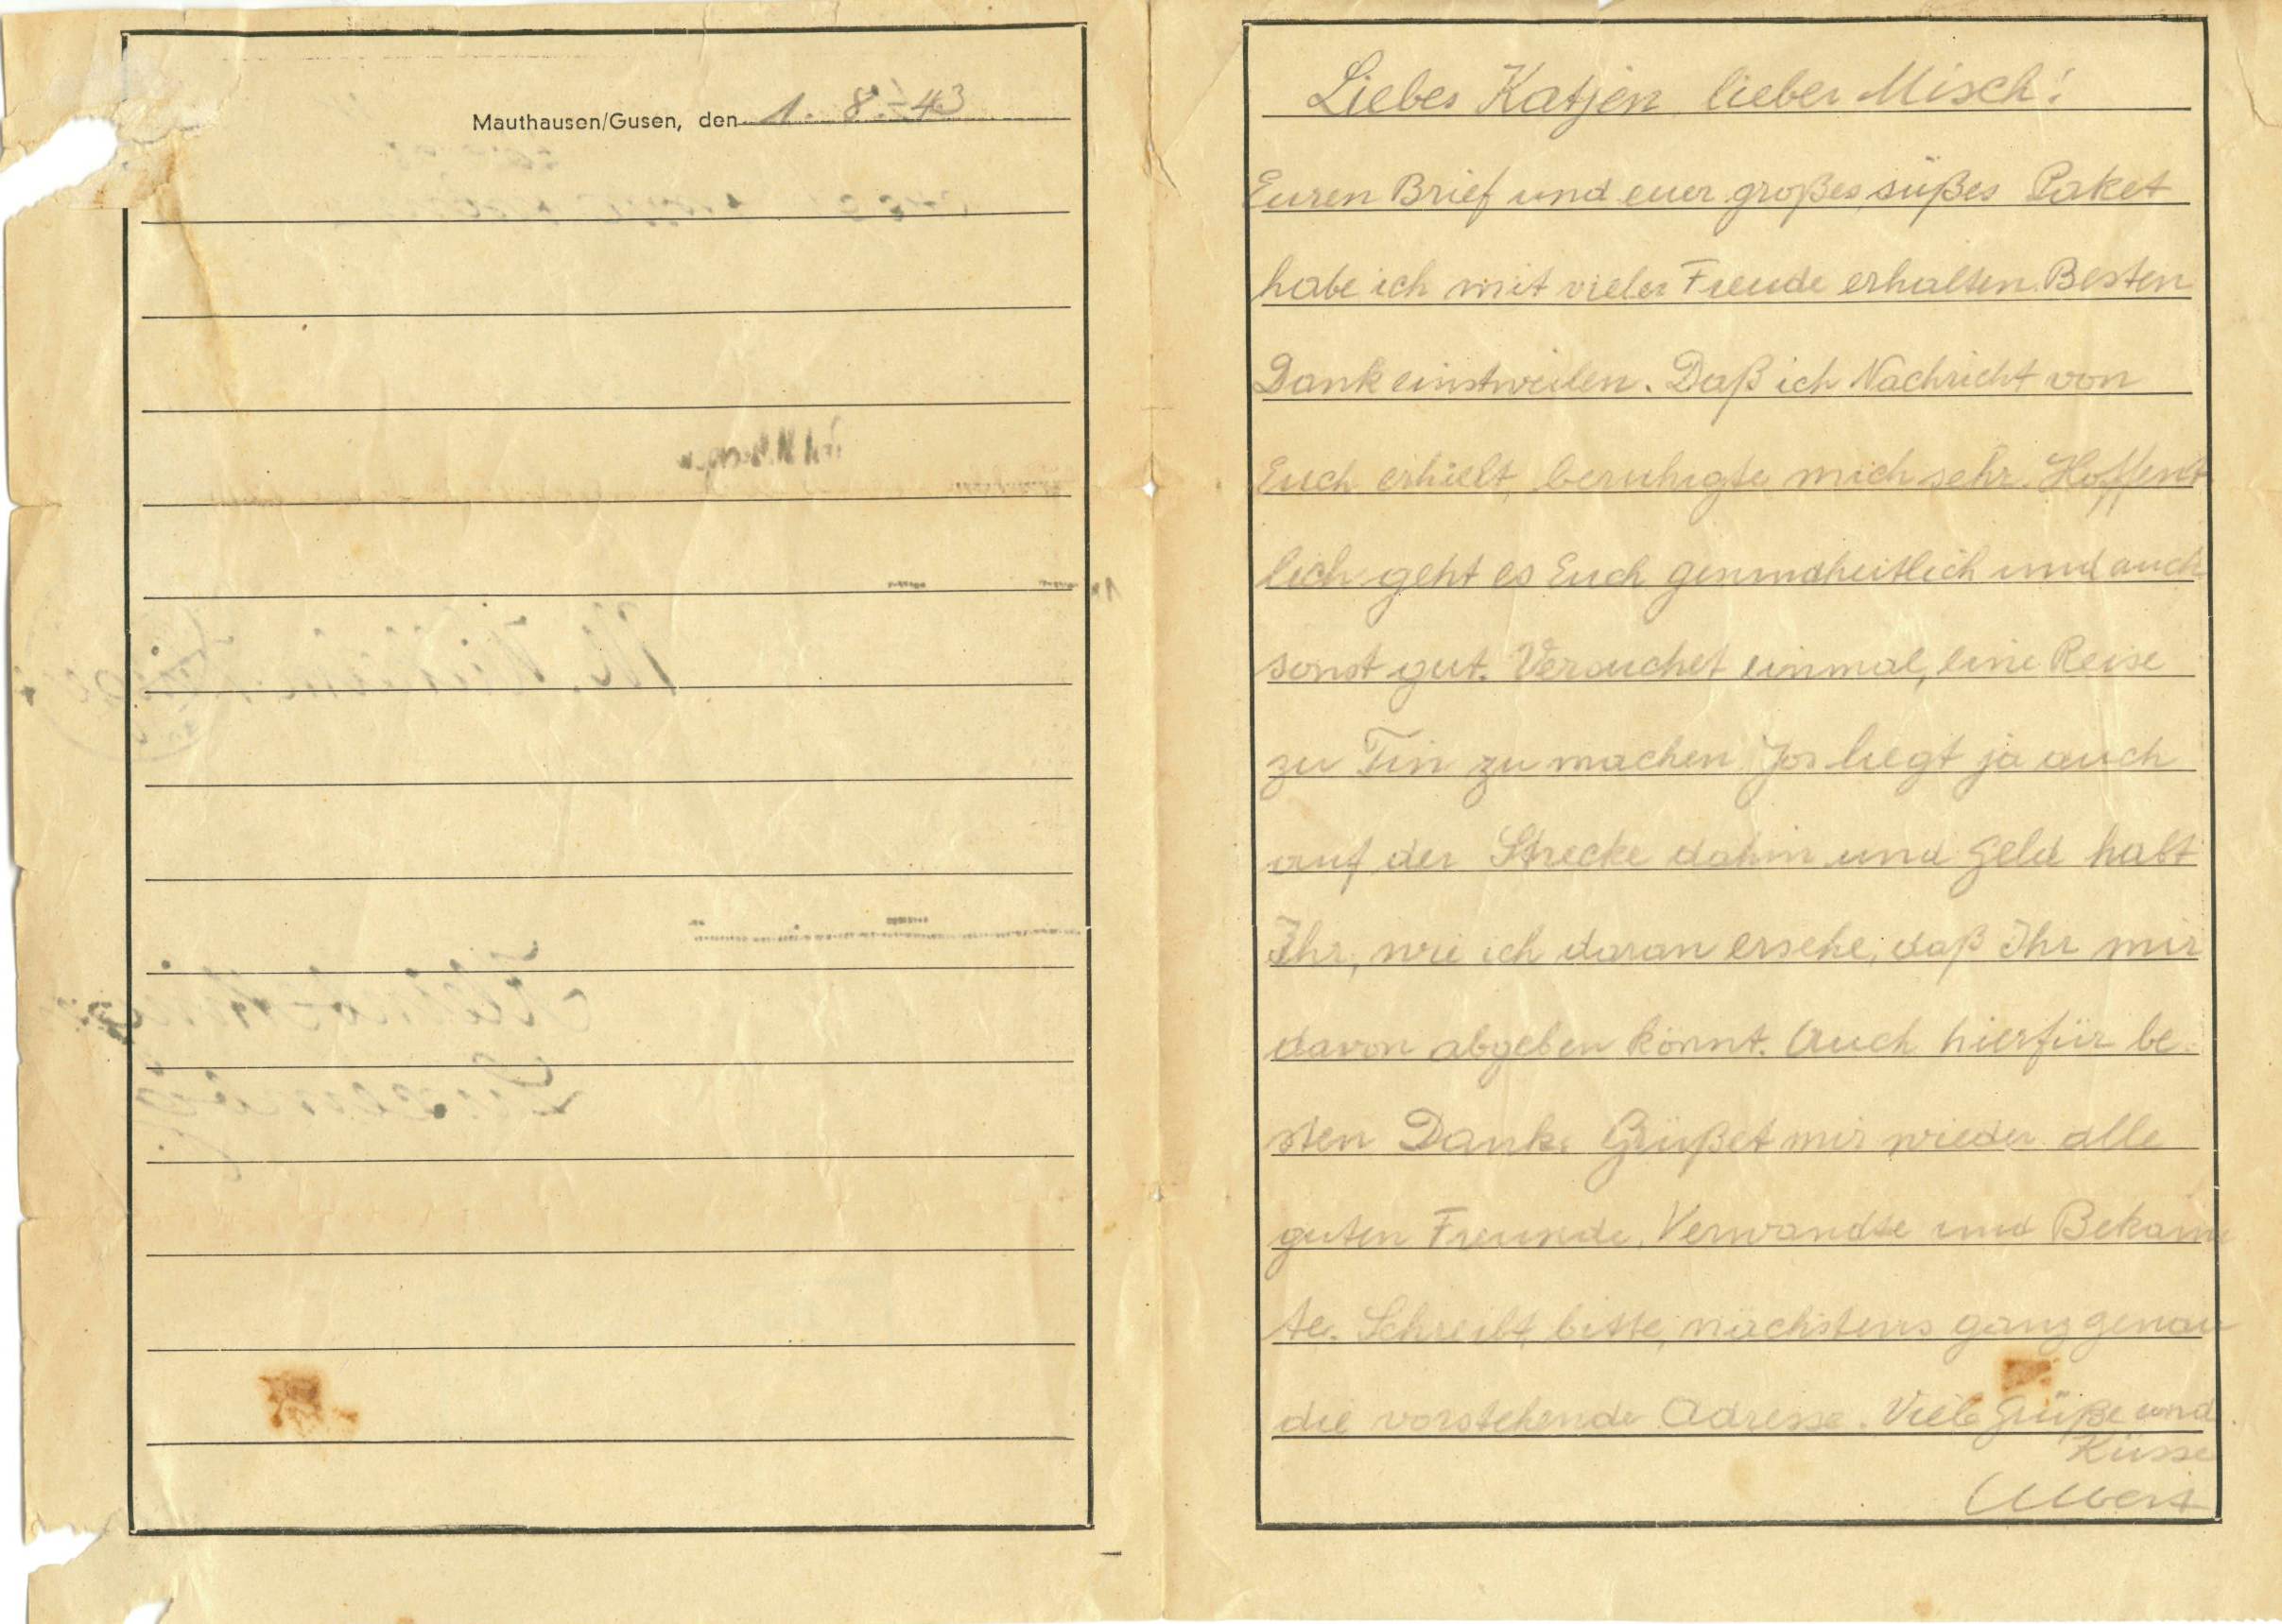 Mauthausen/Gusen, den 1. 8. 43
Liebes Katjen, lieber Misch!
Euren Brief und euer großes, süßes Paket
habe ich mit vieler Freude erhalten. Besten
Dank einstweilen. Daß ich Nachricht von
Euch erhielt, beruhigte mich sehr. Hoffent
lich geht es Euch gesundheitlich und auch
sonst gut. Versuchet einmal, eine Reise
zu Tin zu machen. Jos liegt ja auch
auf der Strecke dahin und Geld habt
Ihr, wie ich daran ersehe, daß Ihr mir
davon abgeben könnt. Auch hierfür be-
sten Dank. Grüßet mir wieder alle
guten Freunde, Verwandte und Bekann
te. Schreibt, bitte, nächstens ganz genau
die vorstehende Adresse. Viele Grüße und
Küsse
Albert